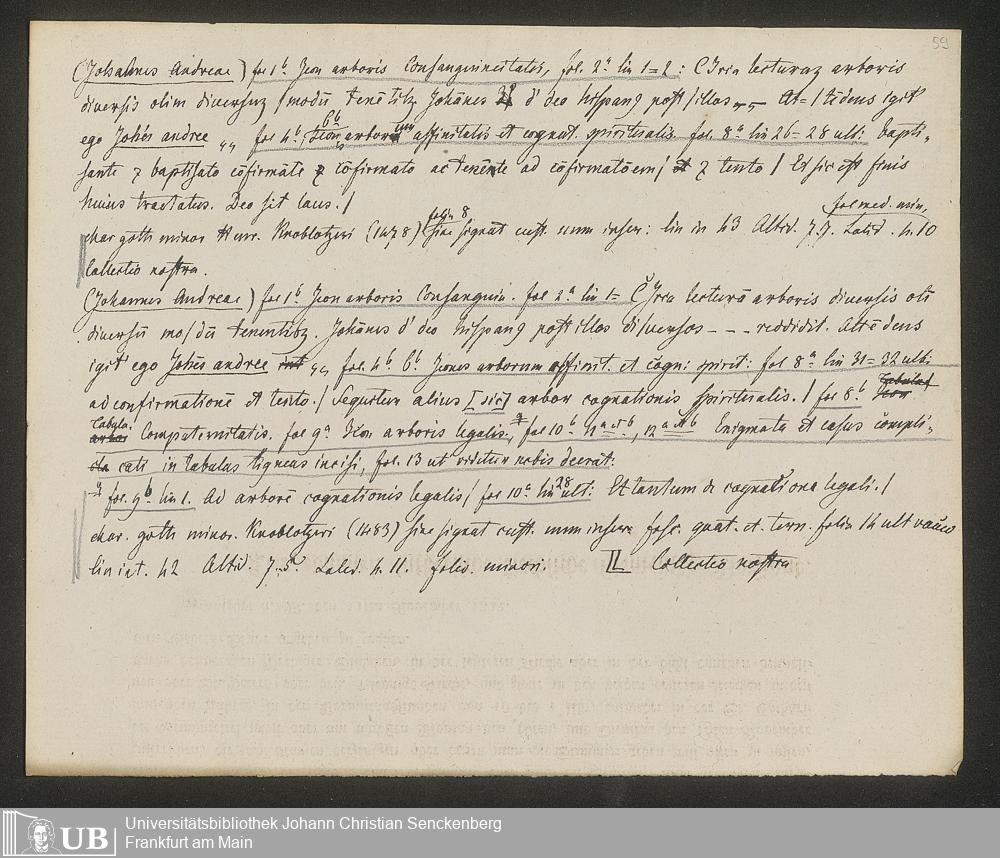 59
(Johannes Andreae) fol 1b. Icon arboris Consanguineitatis, fol. 2a lin 1=2: CIrca lecturaz arboris
diuersis olim diuersuz /modū tenētibz Johānes d' deo hispan9 post /illos -- At= /tēdens igit
ego Johēs andree „ fol 4b, 6b Icon arborum affinitatis et cognat. spiritualis. fol. 8a lin 26=28 ult: bapti-
sante z baptisato cōfirmāte z cōfirmato ac tenente ad cōfirmatōem/ z tento / Et sic est finis
huius tractatus. Deo sit laus. /
fol med. min,
char goth minor Henr. Knoblotzeri (1478) folia 8 sine signat cust. num inser: lin in 43 Altid. 7.7. Latid. 4.10
Collectio nostra.
(Johannes Andreae) fol 1b. Icon arboris Consanguin. fol 2a lin 1= CIrca lecturā arboris diuersis oli
diuersū mo/dū tenentibz. Johānes d' deo hispan9 post illos di/uersos - - - reddidit. Attēdens
igit ego Johēs andree „ fol. 4b 6b Icones arborum affinit. et cogni. spirit: fol 8a lin 31=32 ult:
ad confirmationē et tento. / Sequitur alius [sic] arbor cognationis spiritualis. / fol 8b
Tabula Compaternitatis. fol 9a Icon arboris legalis, fol 10b 11a et b, 12a et b Enigmata et casus compli-
cati in tabulas ligneas incisi, fol. 13 ut videtur nobis deerat:
fol. 9b lin 1. Ad arborē cognationis legalis/ fol 10a lin 28 ult: Et tantum de cognatione legali. /
char. goth minor. Knoblotzeri (1483) sine signat cust. num insere fasc. quat. et tern. folia 14 ult vacuo
lin int. 42 Altid. 7.5. Latid. 4.11. folio. minori. Collectio nostra
UB
Universitätsbibliothek Johann Christian Senckenberg
Frankfurt am Main